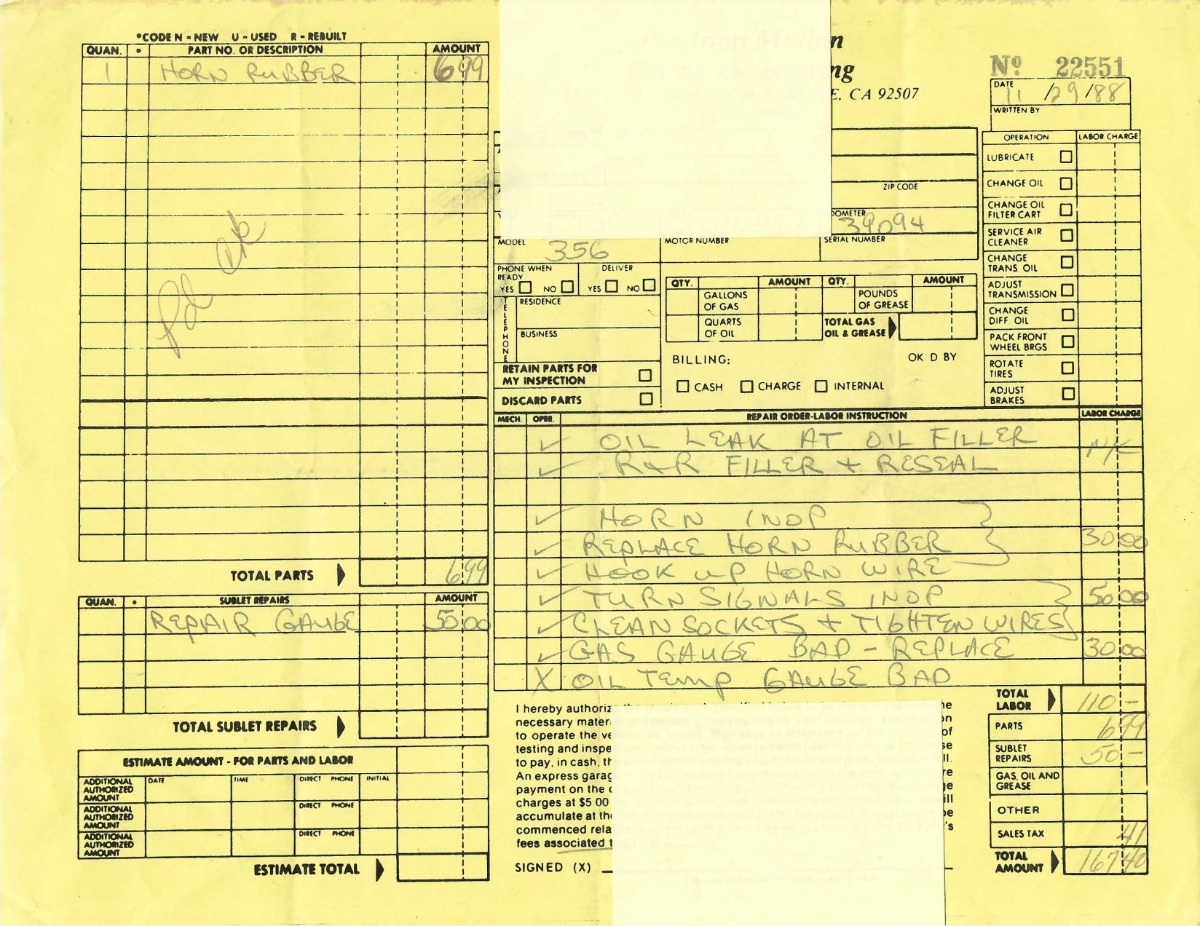 *CODE N - NEW U - USED R - REBUILT
QUAN. * PART NO. OR DESCRIPTION AMOUNT
1 HORN RUBBER 6 99
Pd ck
TOTAL PARTS 6 99
QUAN. * SUBLET REPAIRS AMOUNT
REPAIR GAUGE 50 00
TOTAL SUBLET REPAIRS
ESTIMATE AMOUNT - FOR PARTS AND LABOR
ADDITIONAL AUTHORIZED AMOUNT DATE TIME DIRECT PHONE INITIAL
ADDITIONAL AUTHORIZED AMOUNT DIRECT PHONE
ADDITIONAL AUTHORIZED AMOUNT DIRECT PHONE
ESTIMATE TOTAL
n
ng
E, CA 92507
No 22551
DATE 11/29/88
WRITTEN BY
ZIP CODE
DOMETER
39094
MODEL 356 MOTOR NUMBER SERIAL NUMBER
PHONE WHEN READY YES NO
DELIVER YES NO
TELEPHONE
RESIDENCE
BUSINESS
RETAIN PARTS FOR MY INSPECTION
DISCARD PARTS
QTY. AMOUNT QTY. AMOUNT
GALLONS OF GAS POUNDS OF GREASE
QUARTS OF OIL TOTAL GAS OIL & GREASE
BILLING: OK D BY
CASH CHARGE INTERNAL
OPERATION LABOR CHARGE
LUBRICATE
CHANGE OIL
CHANGE OIL FILTER CART
SERVICE AIR CLEANER
CHANGE TRANS. OIL
ADJUST TRANSMISSION
CHANGE DIFF. OIL
PACK FRONT WHEEL BRGS
ROTATE TIRES
ADJUST BRAKES
MECH. OPER. REPAIR ORDER-LABOR INSTRUCTION LABOR CHARGE
✓ OIL LEAK AT OIL FILLER N/C
✓ R&R FILLER + RESEAL
✓ HORN INOP
✓ REPLACE HORN RUBBER 30 00
✓ HOOK UP HORN WIRE
✓ TURN SIGNALS INOP 50 00
✓ CLEAN SOCKETS + TIGHTEN WIRES
✓ GAS GAUGE BAD - REPLACE 30 00
X OIL TEMP GAUGE BAD
I hereby authoriz
necessary mater
to operate the ve
testing and inspe
to pay, in cash, th
An express garag
payment on the c
charges at $5 00
accumulate at the
commenced rela
fees associated t
SIGNED (X)
TOTAL LABOR 110 -
PARTS 6 99
SUBLET REPAIRS 50 -
GAS, OIL AND GREASE
OTHER
SALES TAX 41
TOTAL AMOUNT 167 40